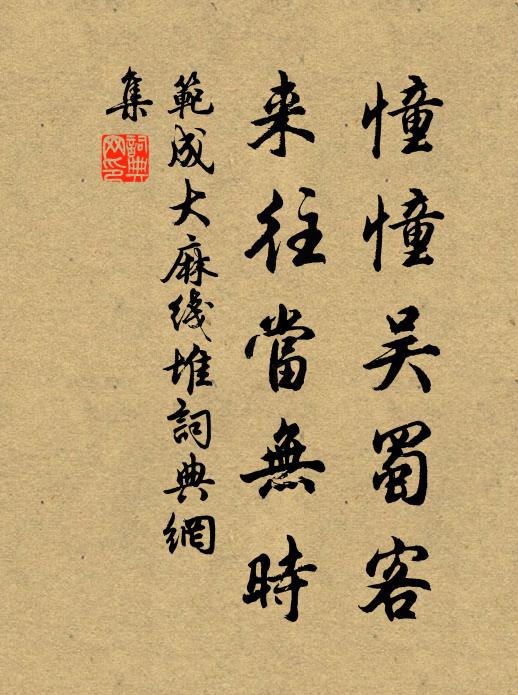 憧憧吴蜀客
来往當無時
範成大麻綫堆詞典網
集
詞典
网印